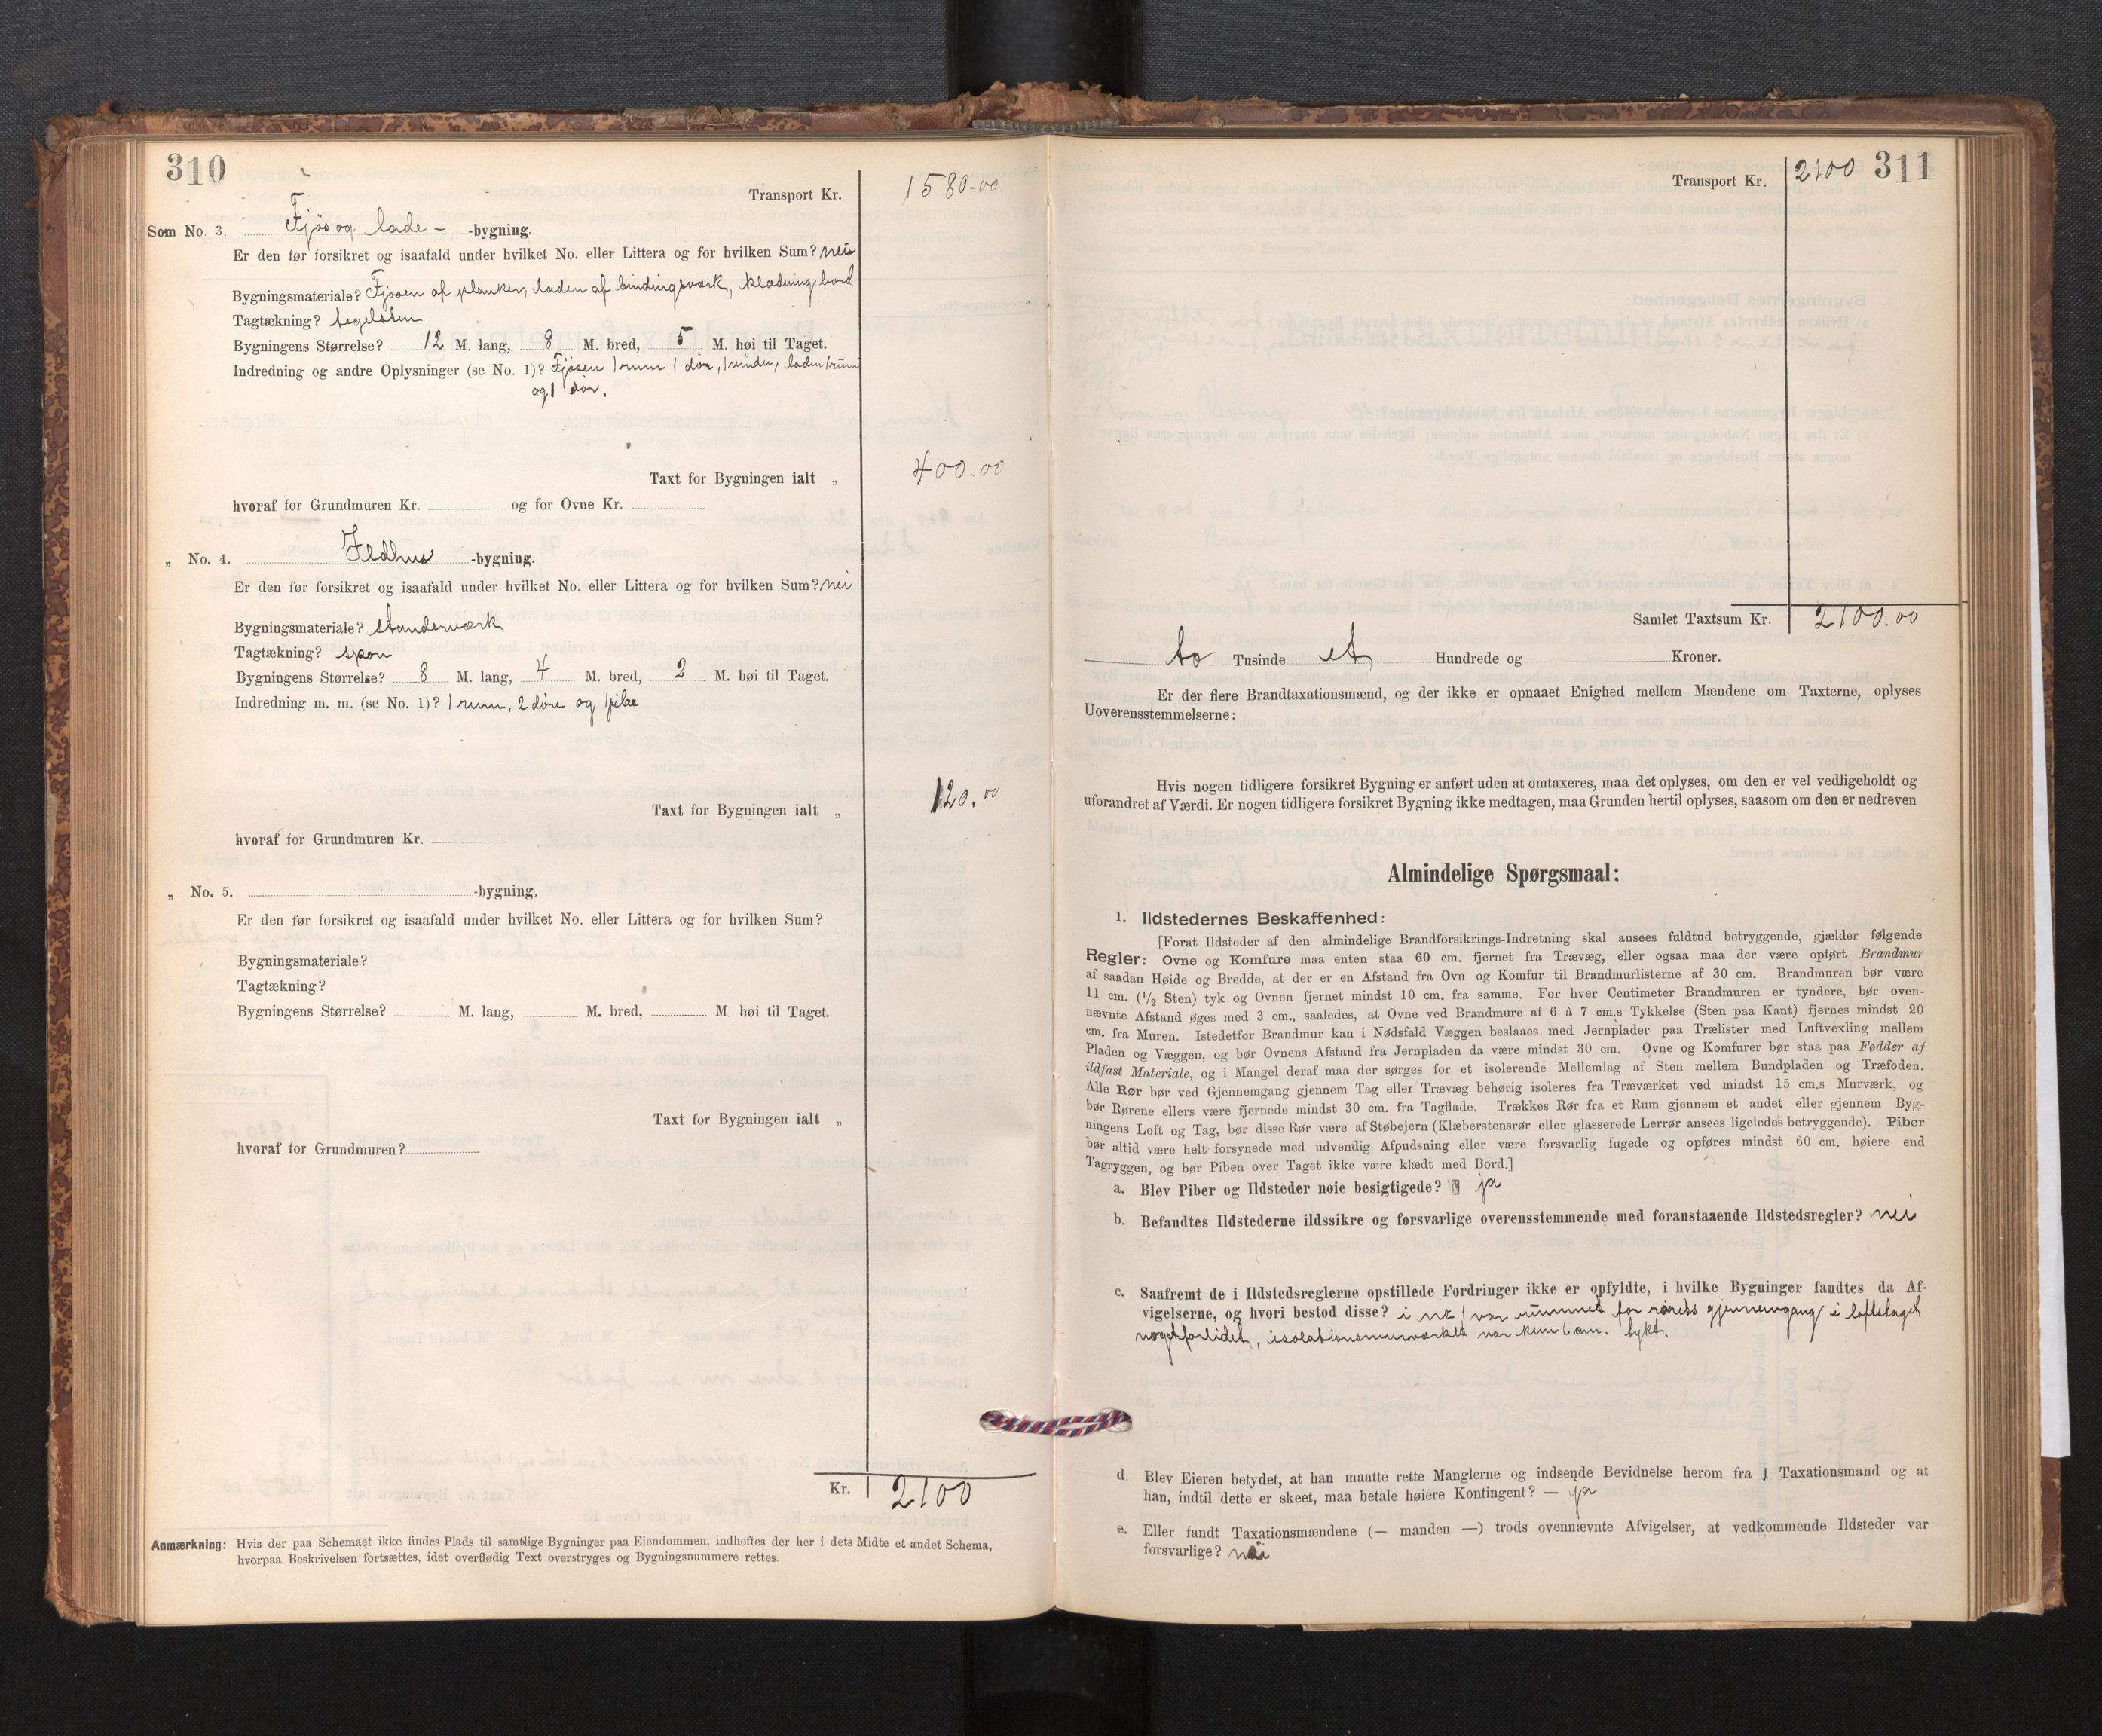 310
Transport Kr. 1580.00
Som No. 3. Fjøs og lade - -bygning.
Er den før forsikret og isaafald under hvilket No. eller Littera og for hvilken Sum? nei
Bygningsmateriale? Fjøsen af planker, laden af bindingsværk, klædning bord
Tagtækning? tegelsten
Bygningens Størrelse? 12 M. lang, 8 M. bred, 5 M. høi til Taget.
Indredning og andre Oplysninger (se No. 1)? Fjøsen 1 rum 1 dør, 1 vindu, laden 1 rum
og 1 dør.
Taxt for Bygningen ialt „ 400.00
hvoraf for Grundmuren Kr. og for Ovne Kr.
„ No. 4. Ildhus -bygning.
Er den før forsikret og isaafald under hvilket No. eller Littera og for hvilken Sum? nei
Bygningsmateriale? standerværk
Tagtækning? spon
Bygningens Størrelse? 8 M. lang, 4 M. bred, 2 M. høi til Taget.
Indredning m. m. (se No. 1)? 1 rum, 2 døre og 1 pibe
Taxt for Bygningen ialt „ 120.00
hvoraf for Grundmuren Kr.
„ No. 5. -bygning,
Er den før forsikret og isaafald under hvilket No. eller Littera og for hvilken Sum?
Bygningsmateriale?
Tagtækning?
Bygningens Størrelse? M. lang, M. bred, M. høi til Taget.
Taxt for Bygningen ialt „
hvoraf for Grundmuren?
Kr. 2100
Anmærkning: Hvis der paa Schemaet ikke findes Plads til samtlige Bygninger paa Eiendommen, indheftes der her i dets Midte et andet Schema,
hvorpaa Beskrivelsen fortsættes, idet overflødig Text overstryges og Bygningsnummere rettes.
Transport Kr. 2100 311
Samlet Taxtsum Kr. 2100.00
to Tusinde et Hundrede og Kroner.
Er der flere Brandtaxationsmænd, og der ikke er opnaaet Enighed mellem Mændene om Taxterne, oplyses
Uoverensstemmelserne:
Hvis nogen tidligere forsikret Bygning er anført uden at omtaxeres, maa det oplyses, om den er vel vedligeholdt og
uforandret af Værdi. Er nogen tidligere forsikret Bygning ikke medtagen, maa Grunden hertil oplyses, saasom om den er nedreven
Almindelige Spørgsmaal:
1. Ildstedernes Beskaffenhed:
[Forat Ildsteder af den almindelige Brandforsikrings-Indretning skal ansees fuldtud betryggende, gjælder følgende
Regler: Ovne og Komfure maa enten staa 60 cm. fjernet fra Trævæg, eller ogsaa maa der være opført Brandmur
af saadan Høide og Bredde, at der er en Afstand fra Ovn og Komfur til Brandmurlisterne af 30 cm. Brandmuren bør være
11 cm. (1/2 Sten) tyk og Ovnen fjernet mindst 10 cm. fra samme. For hver Centimeter Brandmuren er tyndere, bør oven-
nævnte Afstand øges med 3 cm., saaledes, at Ovne ved Brandmure af 6 à 7 cm.s Tykkelse (Sten paa Kant) fjernes mindst 20
cm. fra Muren. Istedetfor Brandmur kan i Nødsfald Væggen beslaaes med Jernplader paa Trælister med Luftvexling mellem
Pladen og Væggen, og bør Ovnens Afstand fra Jernpladen da være mindst 30 cm. Ovne og Komfurer bør staa paa Fødder af
ildfast Materiale, og i Mangel deraf maa der sørges for et isolerende Mellemlag af Sten mellem Bundpladen og Træfoden.
Alle Rør bør ved Gjennemgang gjennem Tag eller Trævæg behørig isoleres fra Træværket ved mindst 15 cm.s Murværk, og
bør Rørene ellers være fjernede mindst 30 cm. fra Tagflade. Trækkes Rør fra et Rum gjennem et andet eller gjennem Byg-
ningens Loft og Tag, bør disse Rør være af Støbejern (Klæberstensrør eller glasserede Lerrør ansees ligeledes betryggende). Piber
bør altid være helt forsynede med udvendig Afpudsning eller være forsvarlig fugede og opføres mindst 60 cm. høiere end
Tagryggen, og bør Piben over Taget ikke være klædt med Bord.]
a. Blev Piber og Ildsteder nøie besigtigede? ja
b. Befandtes Ildstederne ildssikre og forsvarlige overensstemmende med foranstaaende Ildstedsregler? nei
c. Saafremt de i Ildstedsreglerne opstillede Fordringer ikke er opfyldte, i hvilke Bygninger fandtes da Af-
vigelserne, og hvori bestod disse? i nr 1 var rummet for rørets gjennemgang i loftslaget
noget forlidet, isolationsmurværket var kun 6 cm. tykt.
d. Blev Eieren betydet, at han maatte rette Manglerne og indsende Bevidnelse herom fra 1 Taxationsmand og at
han, indtil dette er skeet, maa betale høiere Kontingent? — ja
e. Eller fandt Taxationsmændene (— manden —) trods ovennævnte Afvigelser, at vedkommende Ildsteder var
forsvarlige? nei